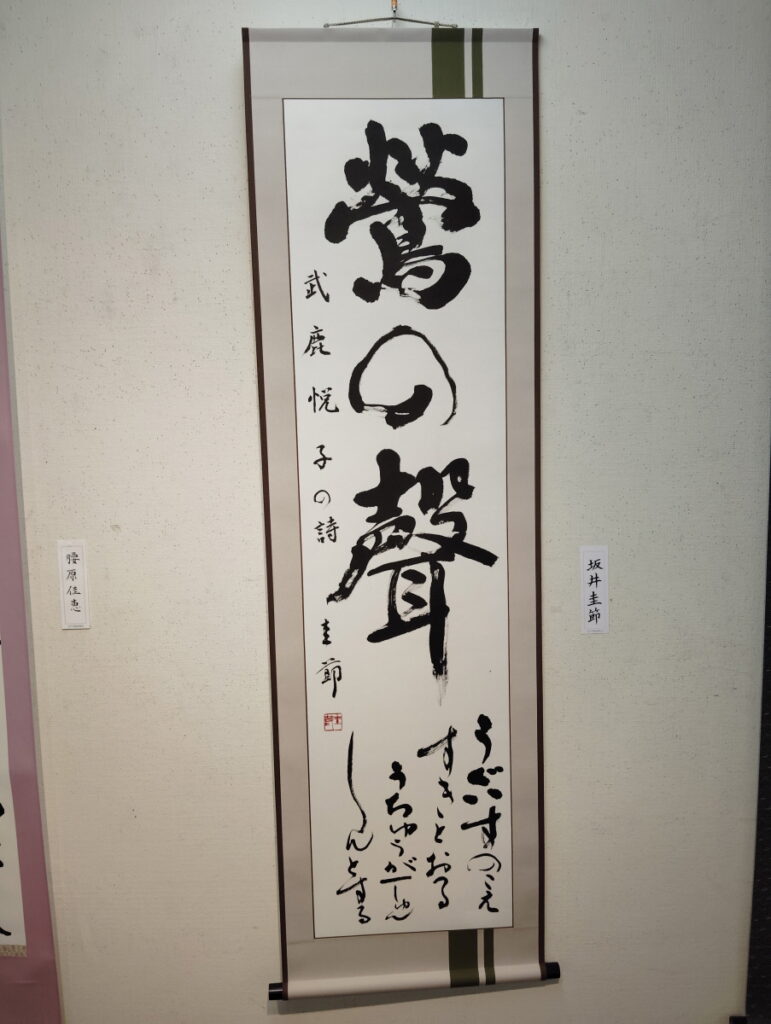 鶯の聲
うぐいすのこえ
すきとおる
うちゅうが一しゅん
しーんとする
武鹿悦子の詩 圭節
坂井圭節
腰原佳恵